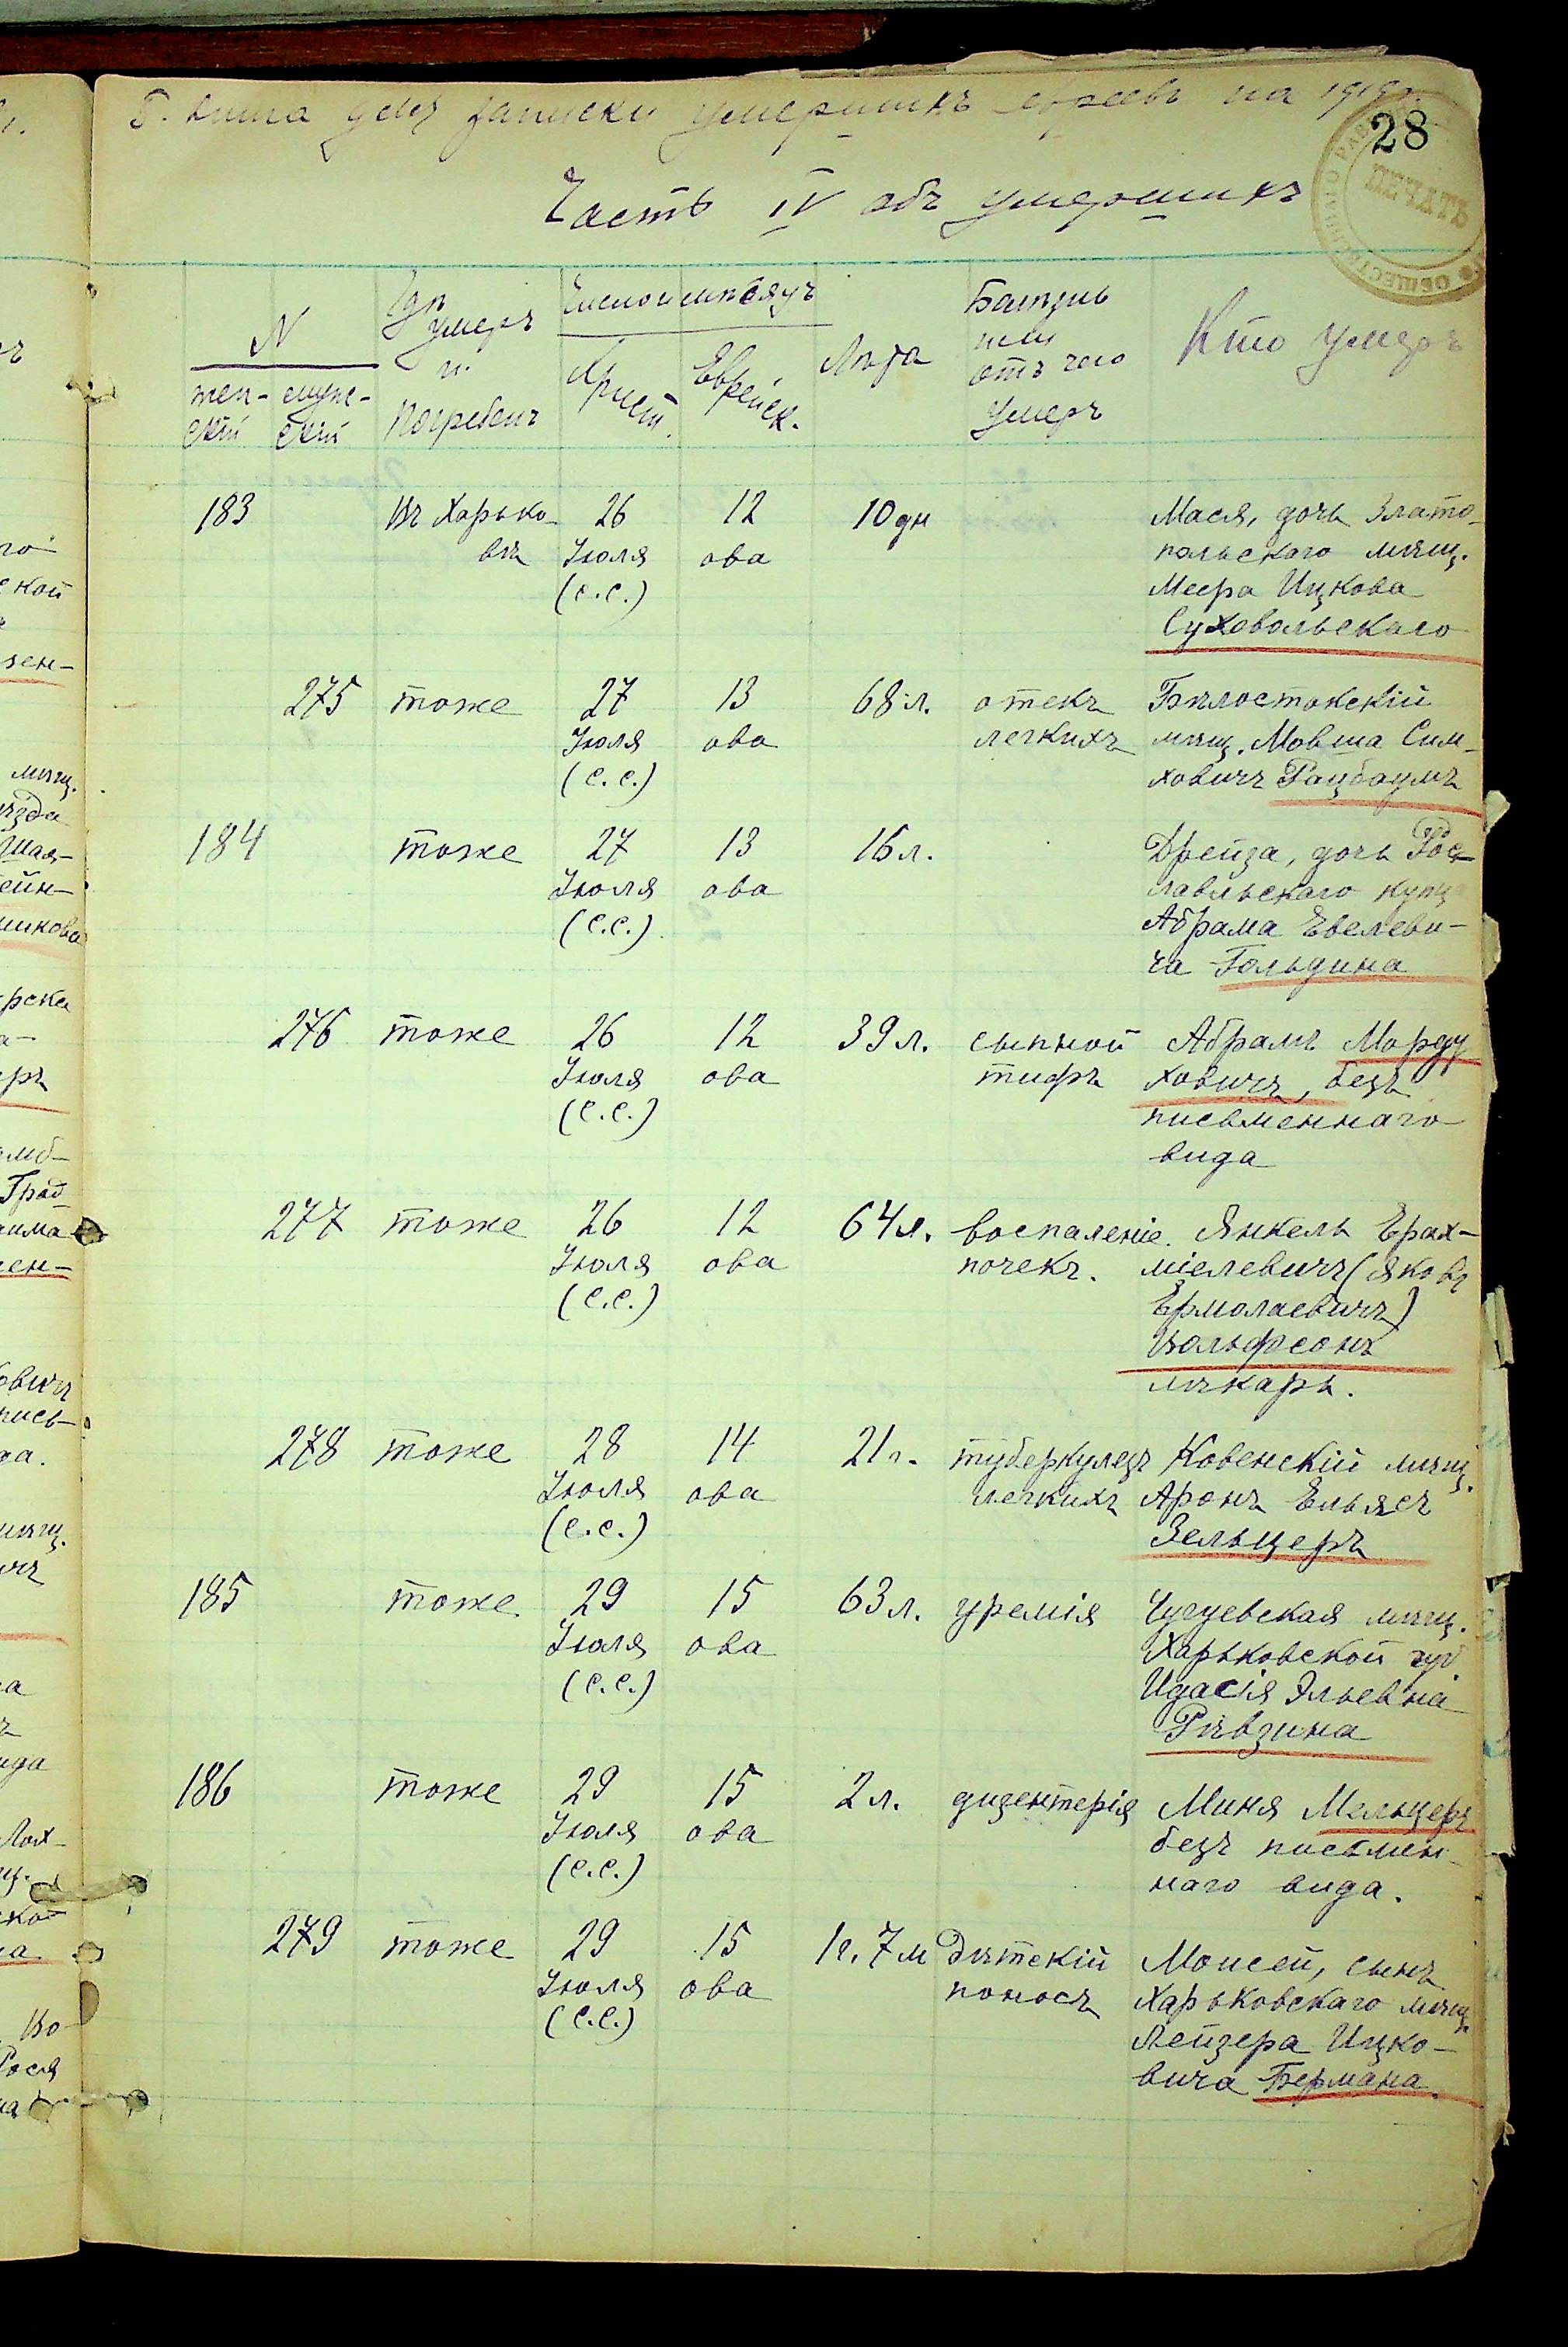 Книга для записки умершихъ евреевъ на 1919г.
28
ПЕЧАТЬ
Часть IV объ умершихъ
N
жен-скій
муже-скій
Гдѣ умеръ и погребенъ
Число и мѣсяцъ
Христ.
Еврейск.
Лѣта
Болѣзнь или отъ чего умеръ
Кто умеръ
183 Въ Харько- 26 12 10 дн Мася, дочь Злато-
вѣ Іюля ова польскаго мѣщ.
(с.с.) Меера Ицкова
Суховольскаго
275 тоже 27 13 68 л. отекъ Бѣлостокскій
Іюля ова легкихъ мѣщ. Мовша Сим-
(с.с.) ховичъ Рацбаумъ
184 тоже 27 13 16 л. Дрейза, дочь Рос-
Іюля ова лавльскаго купц
(с.с.) Абрама Евелеви-
ча Гольдина
276 тоже 26 12 39 л. сыпной Абрамъ Морду
Іюля ова тифъ ховичъ, безъ
(с.с.) письменнаго
вида
277 тоже 26 12 64 л. воспаленіе Янкель Ерах-
Іюля ова почекъ. міелевичъ (Яковъ
(с.с.) Ермолаевичъ)
Вольфсонъ
лѣкарь.
278 тоже 28 14 21 г. туберкулезъ Ковенскій мѣщ.
Іюля ова легкихъ Аронъ Ельясъ
(с.с.) Зельцеръ
185 тоже 29 15 63 л. уремія Чугуевская мѣщ.
Іюля ова Харьковской губ.
(с.с.) Идасія Эльевна
Рѣвзина
186 тоже 29 15 2 л. дизентерія Миня Мельцеръ
Іюля ова безъ письмен-
(с.с.) наго вида.
279 тоже 29 15 1 г. 7 м Дѣтскій Моисей, сынъ
Іюля ова поносъ Харьковскаго мѣщ.
(с.с.) Лейзера Ицко-
вича Бермана.